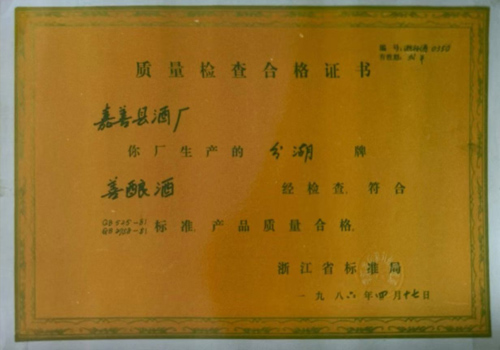 编号:
质量检查合格证书
有效期:
嘉善县酒厂
你厂生产的 分湖 牌
善酿酒 经检查,符合
标准,产品质量合格.
浙江省标准局
一九八六年四月十七日